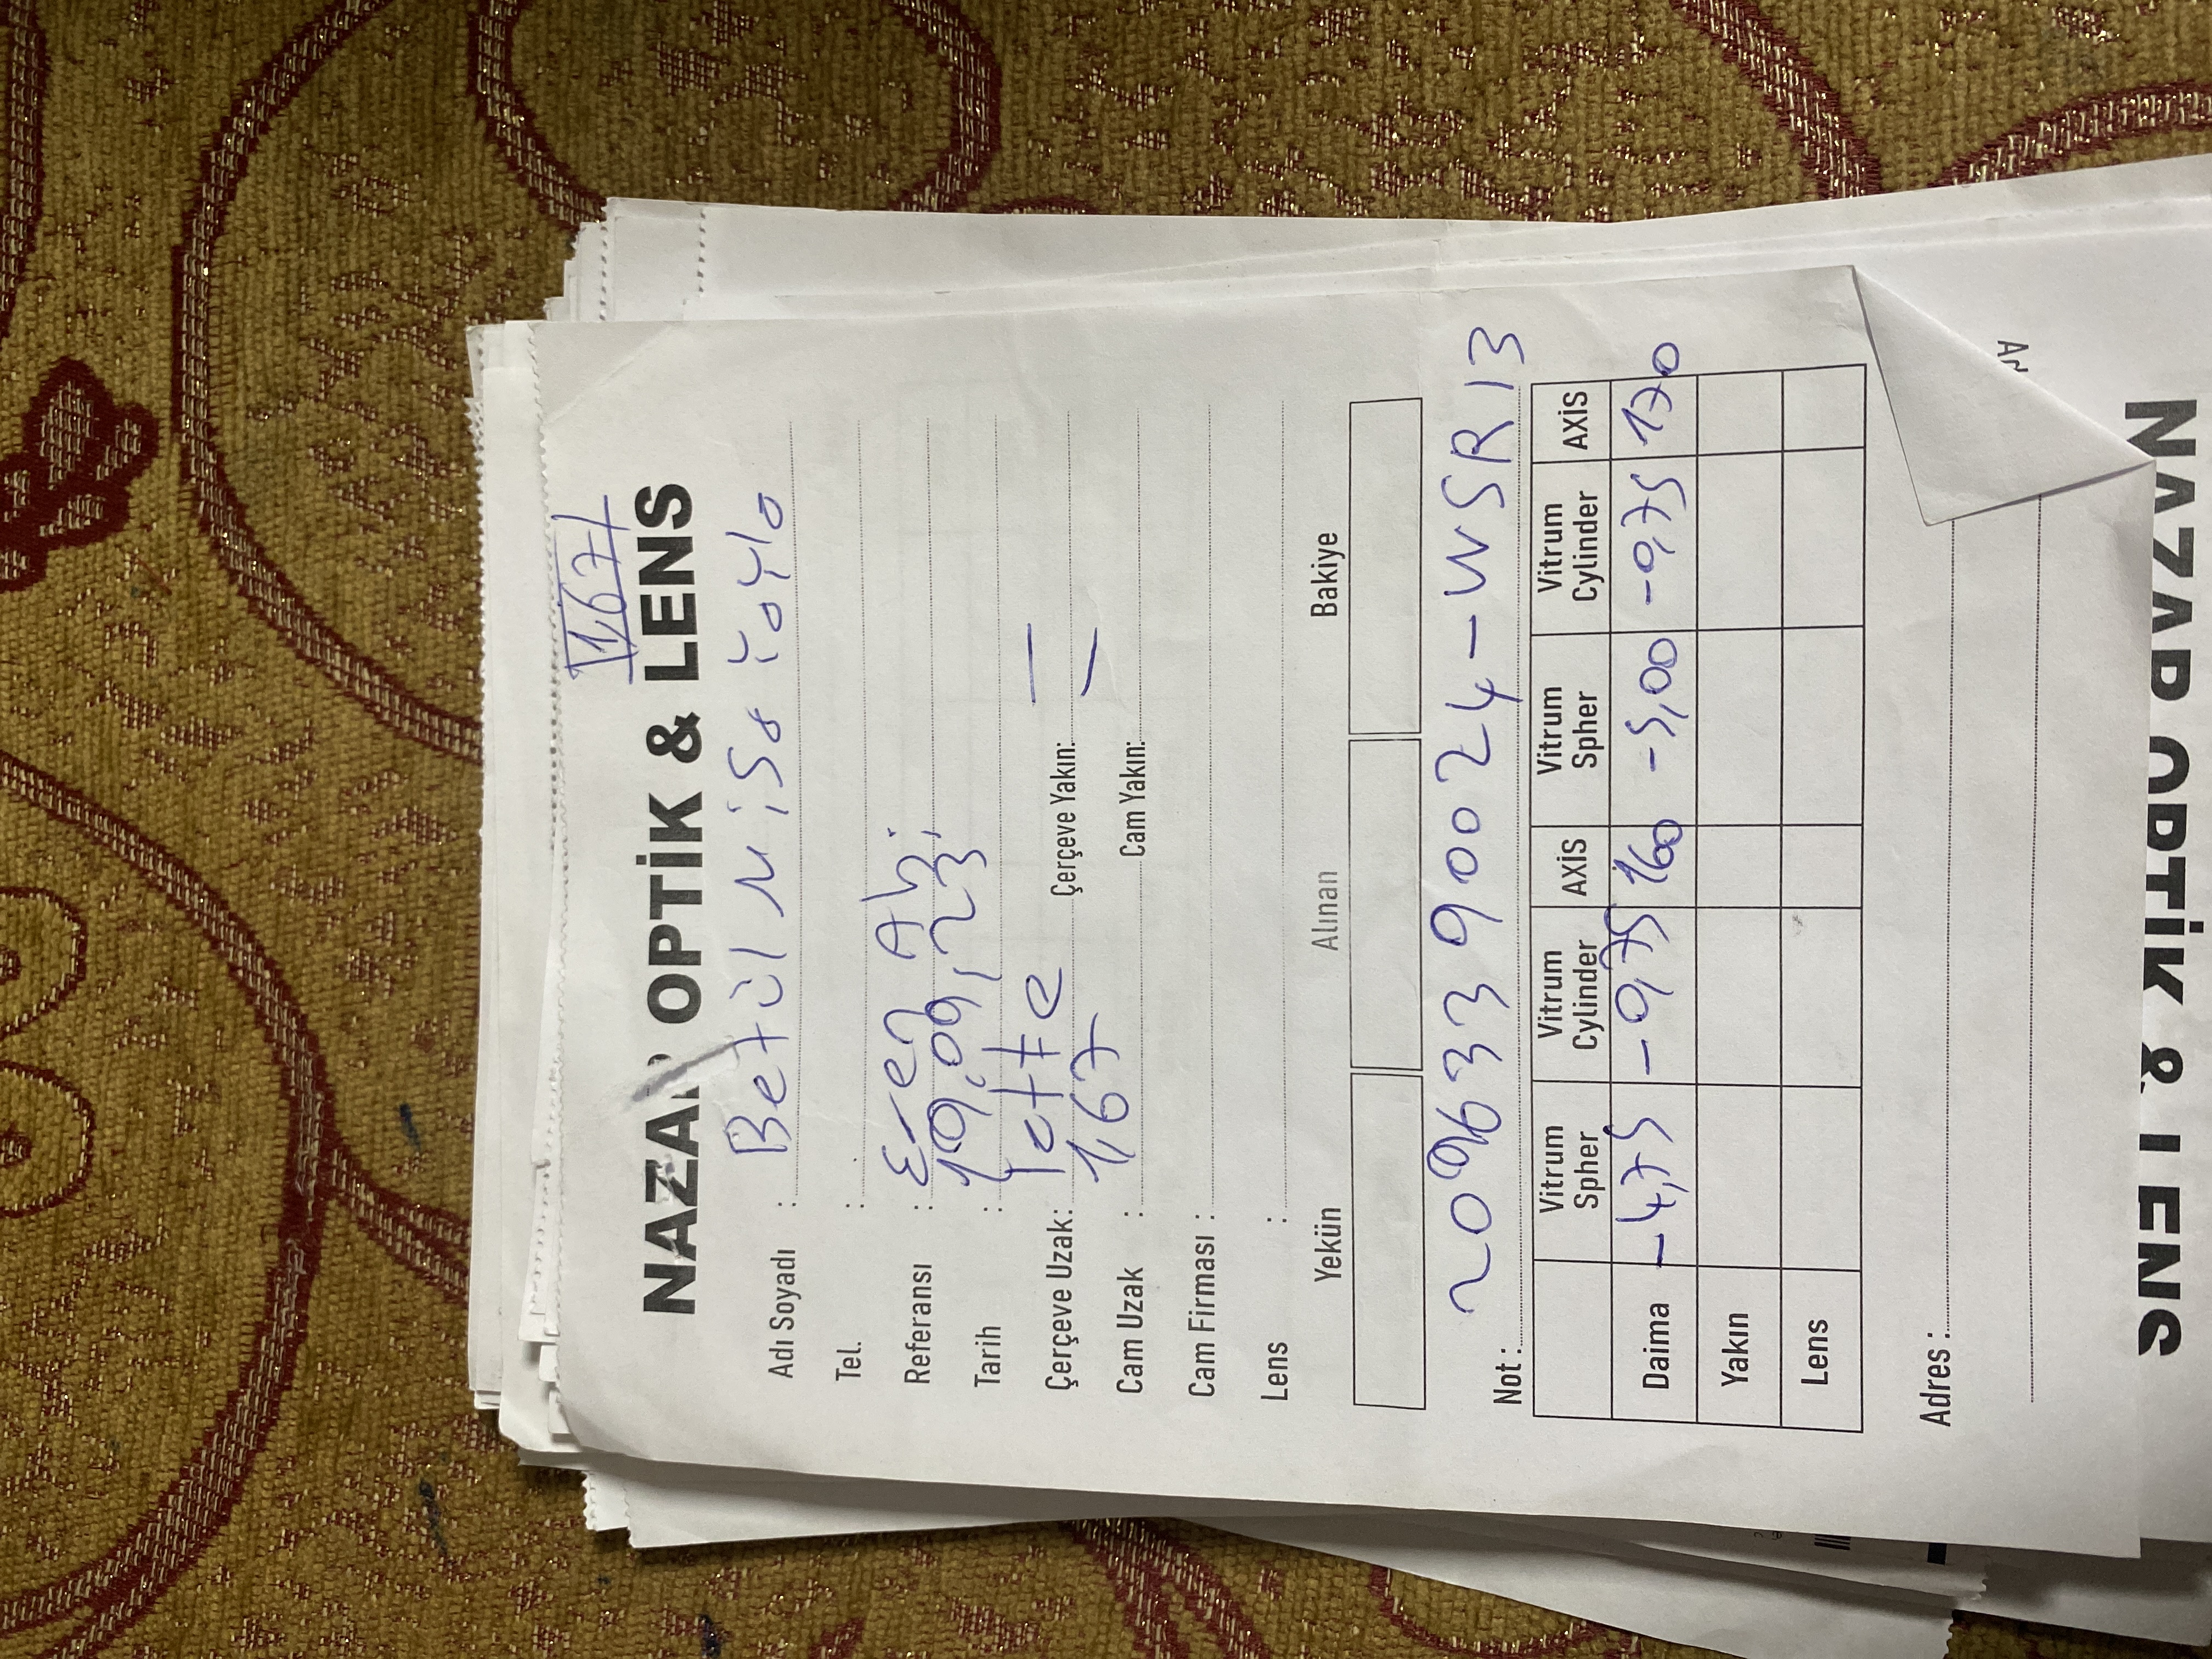 1,67
NAZAR OPTİK & LENS
Adı Soyadı : Betül Nisa Yayla
Tel. :
Referansı : Eren Abi
Tarih : 19,09,23
Çerçeve Uzak: Çerçeve Yakın: —
Cam Uzak : 1,67 Cam Yakın: —
Cam Firması :
Lens :
Yekün Alınan Bakiye
Not : 20963390024-WSR13
Vitrum Spher Vitrum Cylinder AXİS Vitrum Spher Vitrum Cylinder AXİS
Daima -4,75 -0,75 160 -5,00 -0,75 170
Yakın
Lens
Adres :
NAZAR OPTİK & LENS